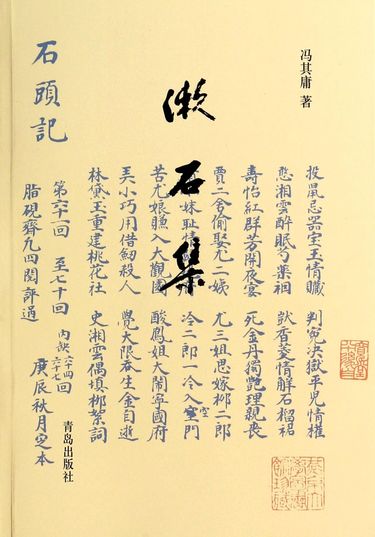 冯其庸 著
漱石集
投鼠忌器宝玉情贓 判寃决獄平兒情權
憨湘雲醉眠芍藥裀 獃香菱情解石榴裙
壽怡紅群芳開夜宴 死金丹獨艷理親丧
賈二舍偷娶尤二姨 尤三姐思嫁柳二郎
妹耻情 冷二郎一冷入空門
苦尤娘賺入大觀園 酸鳳姐大鬧寧國府
弄小巧用借劍殺人 覺大限吞生金自逝
林黛玉重建桃花社 史湘雲偶填柳絮詞
第六十一回 至七十回 内缺六十四回六十七回
脂硯齋凡四閱評過 庚辰秋月定本
石頭記
青岛出版社